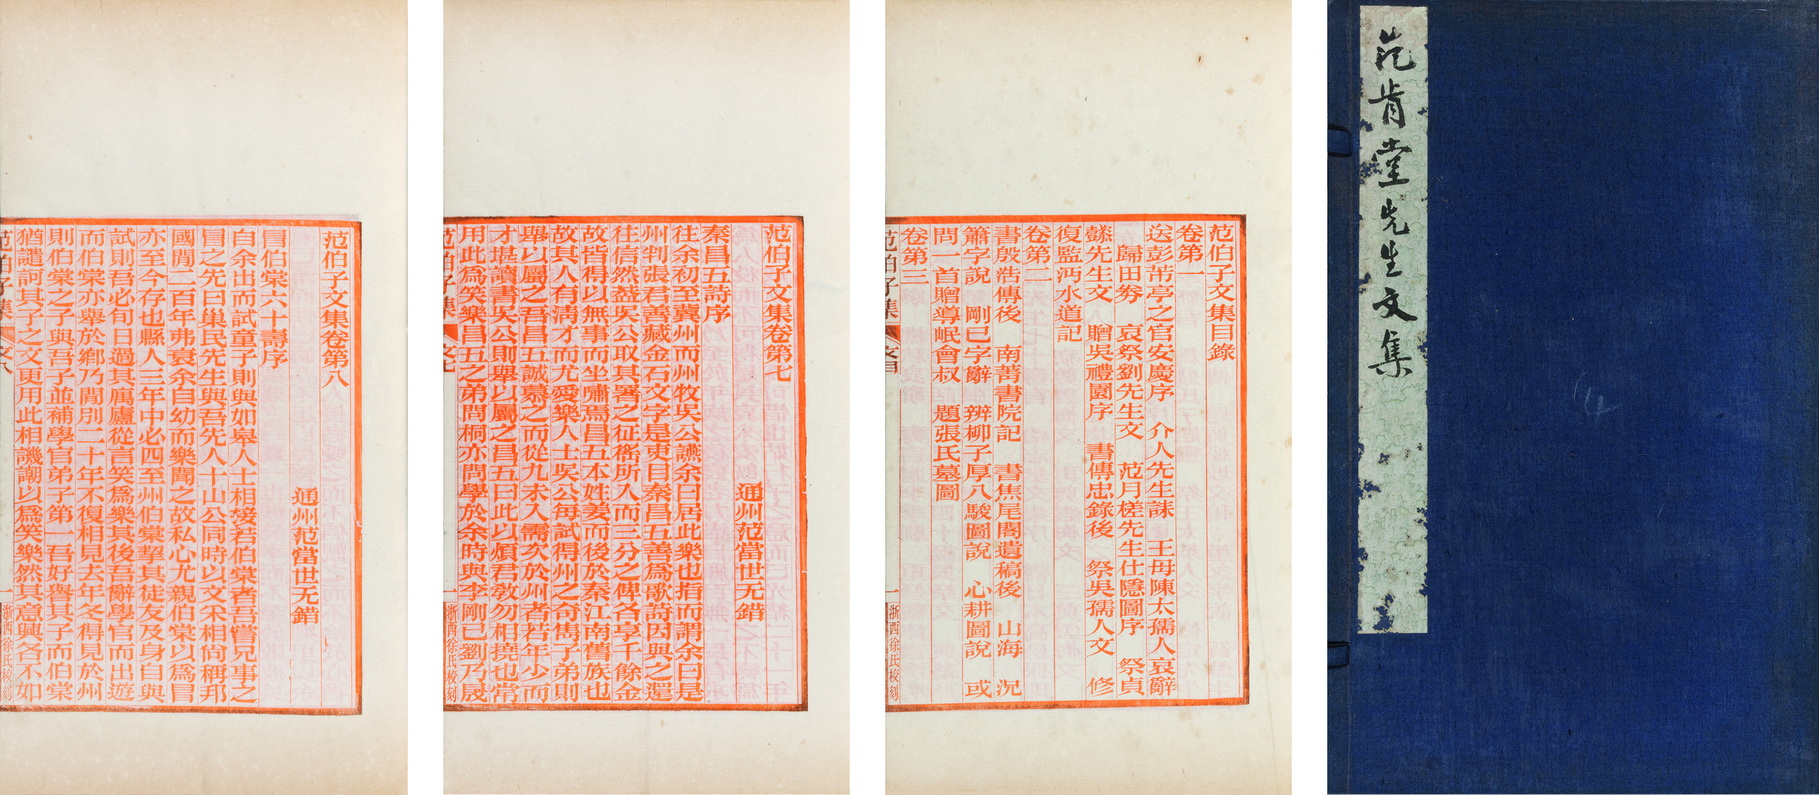 范肯堂先生文集
范伯子文集目錄
卷第一
送彭芾亭之官安慶序 介人先生誄 王母陳太孺人哀辭
歸田券 哀祭劉先生文 范月槎先生仕隱圖序 祭貞
懿先生文 贈吳禮園序 書傅忠錄後 祭吳孺人文 修
復監沔水道記
卷第二
書殷浩傳後 南菁書院記 書焦尾閣遺稿後 山海 況
簫字說 剛己字辭 辨柳子厚八駿圖說 心耕圖說 或
問一首贈導岷會叔 題張氏墓圖
卷第三
范伯子集 文目 一 浙西徐氏校刻
范伯子文集卷第七
通州范當世无錯
秦昌五詩序
往余初至冀州而州牧吳公讌余曰居此樂也酒而謂余曰是
州判張君善藏金石文字是吏目秦昌五善爲歌詩因與之還
往信然蓋吳公取其署之征榷所入而三分之俾各享千餘金
故皆得以無事而坐嘯焉昌五本姓姜而後於秦江南舊族也
故其人有清才而尤愛樂人士吳公每試得州之奇雋子弟則
舉以屬之吾昌五誠慕之而從九未入需次於州者若年少而
才堪讀書吳公則舉以屬之昌五曰此以煩君敎勿相撓也常
用此爲笑樂昌五之弟問桐亦問學於余時與李剛己劉乃晟
范伯子集 文七 一 浙西徐氏校刻
范伯子文集卷第八
通州范當世无錯
冒伯棠六十壽序
自余出而試童子則與如皋人士相接若伯棠者吾嘗兄事之
冒之先曰巢民先生與吾先人十山公同時以文采相尙稱邦
國閒二百年弗衰余自幼而樂聞之故私心尤親伯棠以爲冒
亦至今存也縣人三年中必四至州伯棠挈其徒友及身自與
試則吾必旬日過其寓廬從言笑爲樂其後吾辭學官而出遊
而伯棠亦舉於鄉乃閒別二十年不復相見去年冬得見於州
則伯棠之子與吾子並補學官弟子第一吾好譽其子而伯棠
猶譴訶其子之文更用此相譏謿以爲笑樂然其意興各不如
范伯子集 文八 一 浙西徐氏校刻